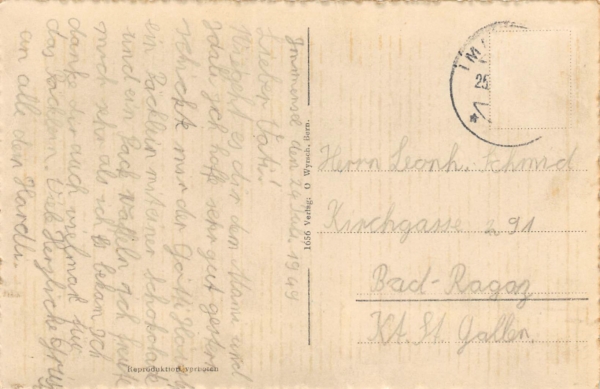 Immensee, den 25. Juli 1949
Lieber Vati!
Wie geht es dir dem Mami und
Idali. Ich habe sehr gut gestern
schickte mir der Götti Hans
ein Päcklein mit einer Schokolade
und ein Sack Waffeln. Ich freute
mich sehr als ich es bekam. Ich
danke dir auch vielmal für
das Päcklein. Viele herzliche Grüsse
an alle dein Hardli.
1656 Verlag: O Wyrsch, Bern.
Reproduktion vorboten
IM
25
Herrn Leonh. Schmid
Kirchgasse 291
Bad-Ragaz
Kt. St. Gallen.